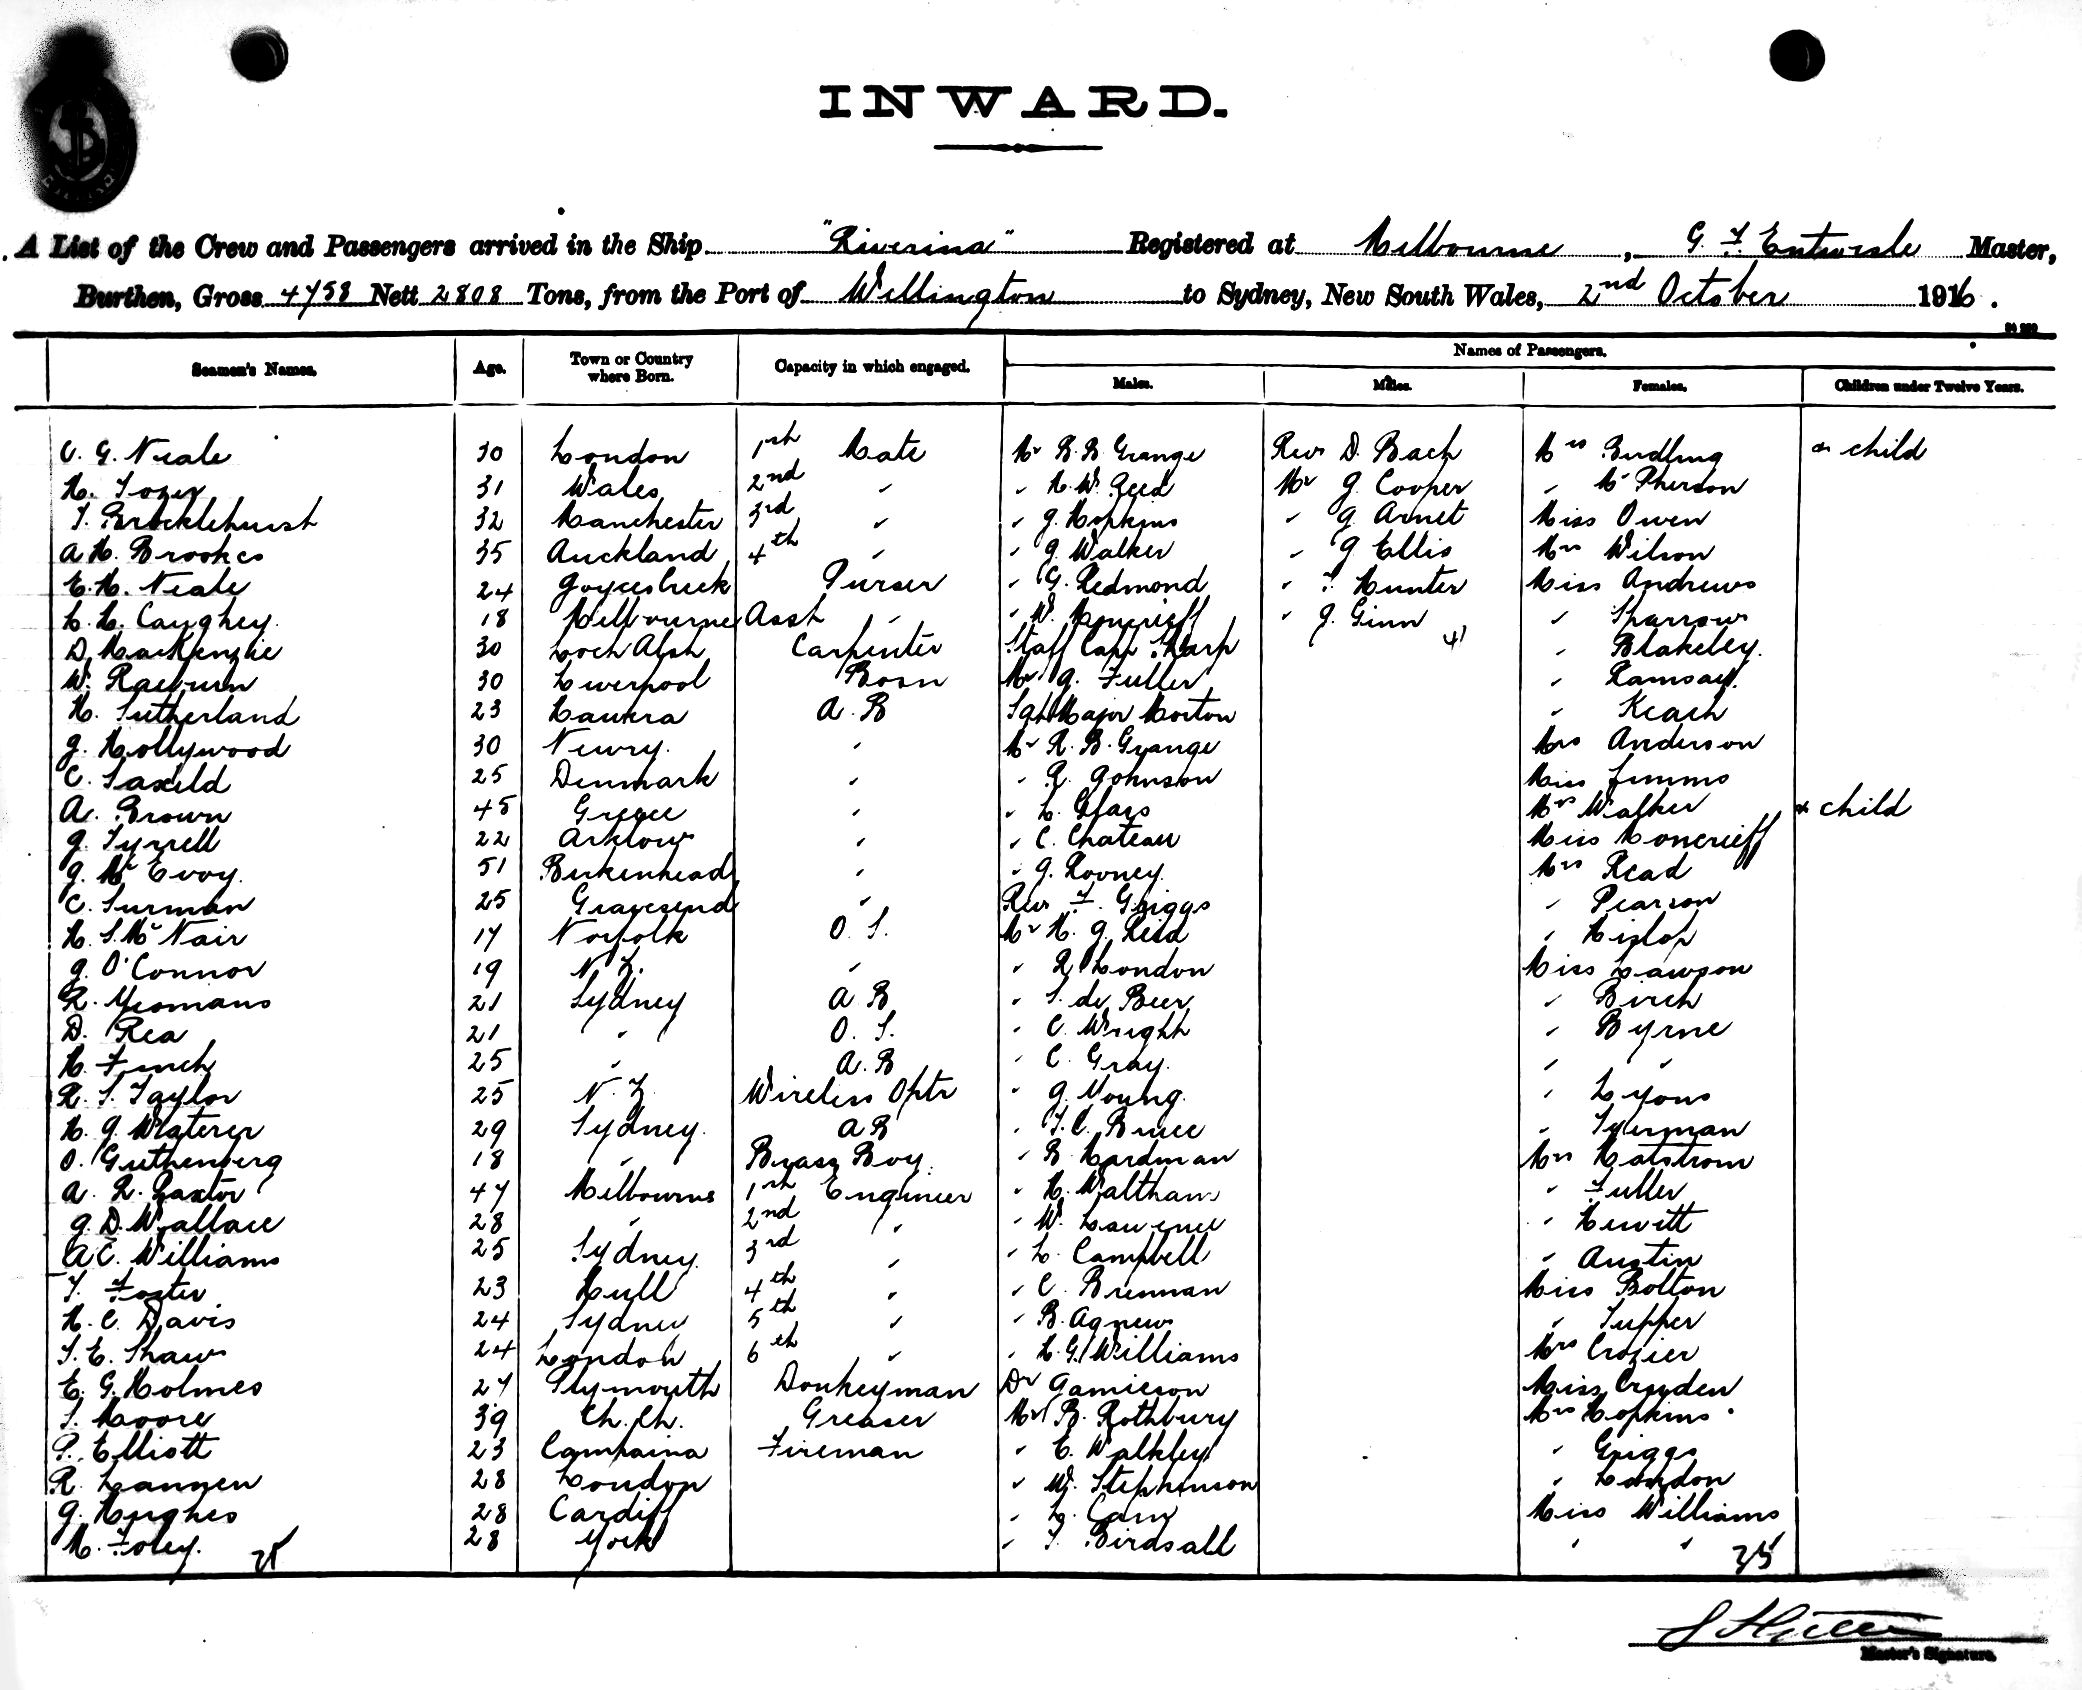 INWARD.
A List of the Crew and Passengers arrived in the Ship "Riverina" Registered at Melbourne, G. F. Entwisle Master,
Burthen, Gross 4758 Nett 2808 Tons, from the Port of Wellington to Sydney, New South Wales, 2nd October 1916.
Seamen's Names. Age. Town or Country where Born. Capacity in which engaged. Names of Passengers.
Males. Males. Females. Children under Twelve Years.
C. G. Neale 30 London 1st Mate Mr B. B. Grange Rev D. Bach Mrs Budling & child
H. Tozer 31 Wales 2nd " " H. W. Reed Mr J. Cooper " McPherson
T. Brocklehurst 32 Manchester 3rd " " J. Hopkins " J. Arnet Miss Owen
A H. Brookes 35 Auckland 4th " " J. Walker " J Ellis Mrs Wilson
E. H. Neale 24 Joyces Creek Purser " G. Redmond " T. Hunter Miss Andrews
L. H. Caughey. 18 Melbourne Asst " " W. Moncrieff " J. Ginn 41 " Sparrow
D. MacKenzie 30 Loch Alsh Carpenter Staff Capt Sharp " Blakeley.
W. Raeburn 30 Liverpool Bosn Mr J. Fuller " Ramsay.
H. Sutherland 23 Hawera A. B Sgt Major Morton " Keach
J. Hollywood 30 Newry. " Mr R. B. Grange Mrs Anderson
C. Saxild 25 Denmark " " R. Johnson Miss Simms
A. Brown 45 Greece " " L. Glass Mrs Walker & child
J. Tyrrell 22 Arklow " " C. Chateau Miss Moncrieff
J. McEvoy. 51 Birkenhead " " J. Rooney. Mrs Read
C. Surman 25 Gravesend " Rev F. Griggs " Pearson
H. S. McNair 17 Norfolk O. S. Mr H. J. Reid " Hislop
J. O'Connor 19 N. Z. " " R. London Miss Lawson
R. Yeomans 21 Sydney A. B " S. de Beer " Birch
D. Rea 21 " O. S. " C. Wright " Byrne
H. Finch 25 " A. B " C. Gray. " "
R. S. Taylor 25 N. Z. Wireless Optr " J. Young. " Lyons
H. J. Waterer 29 Sydney. A B " T. C. Bruce "
O. Guthenberg 18 " Brass Boy. " B. Hardman Mrs Halstrom
A. R. Baxter 47 Melbourne 1st Engineer " H. Waltham " Fuller
J. D. Wallace 28 " 2nd " " W. Lawrence " Hewitt
A C. Williams 25 Sydney. 3rd " " L. Campbell " Austin
T. Foster 23 Hull 4th " " C. Brennan Miss Bolton
H. C. Davis 24 Sydney 5th " " B. Agnew " Tupper
S. E. Shaw 24 London 6th " " L. G. Williams Mrs Crozier
E. G. Holmes 27 Plymouth Donkeyman Dr Jamieson Miss Croyden
S. Moore 39 Ch. Ch. Greaser Mr B. Rothbury Mrs Hopkins
P. Elliott 23 Campaina Fireman " E. Walkley " Griggs
R. Langen 28 London " W. Stephenson " London
J. Hughes 28 Cardiff " L. Cam Miss Williams
M. Foley. 35 28 York " T. Birdsall " " 35
Master's Signature.